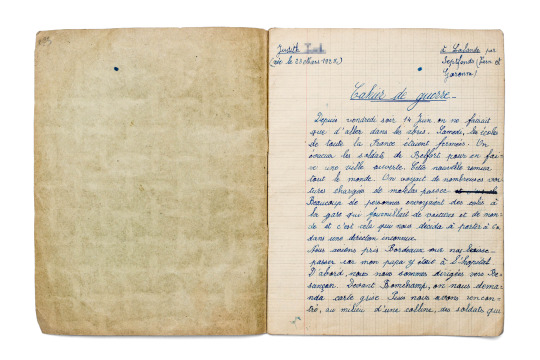 Judith
à Lalande par
(née le 23 Mars 1928)
Septfonds (Tarn et
Garonne)
Cahier de guerre
Depuis vendredi soir 14 Juin on ne faisait
que d'aller dans les abris. Samedi, les écoles
de toute la France étaient fermées. On
les soldats de Belfort pour en fai-
re une ville ouverte. Cette nouvelle remua
tout le monde. On voyait de nombreuses voi-
tures chargées de matelas passer
Beaucoup de personnes envoyaient des colis à
la gare qui fourmillait de voitures et de mon-
de et c'est cela que nous décida à partir à
dans une direction inconnue.
Nous avions pris Bordeaux sur
passer car mon papa y était à l'hôpital
D'abord, nous nous sommes dirigées vers Be-
sançon. Devant Bomchamps, on nous dema-
nda carte grise. Puis nous avons rencon-
tré, au milieu d'une colline, des soldats qui